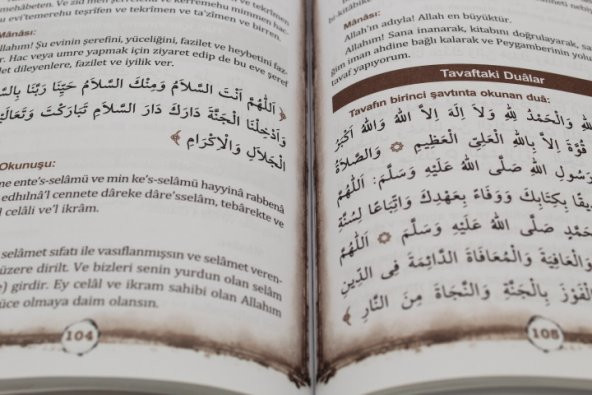 mehâbeten. Ve zid men şerrefehu ve kerremehu mimmen hac-
ev i'temerehu teşrîfen ve tekrîmen ve ta'zîmen ve birren.
Mânâsı:
Allahım! Şu evinin şerefini, yüceliğini, fazilet ve heybetini faz-
Hac veya umre yapmak için ziyaret edip de bu eve şeref
dileyenlere, fazilet ve iyilik ver.
﴿ اَللّٰهُمَّ اَنْتَ السَّلَامُ وَمِنْكَ السَّلَامُ حَيِّنَا رَبَّنَا
وَاَدْخِلْنَا الْجَنَّةَ دَارَكَ دَارَ السَّلَامِ تَبَارَكْتَ وَتَعَالَيْ
الْجَلَالِ وَالْاِكْرَامِ ﴾
Okunuşu:
ente's-selâmü ve min ke's-selâmü hayyinâ rabbenâ
edhılnâ'l cennete dâreke dâre'sselâm, tebârekte ve
celâli ve'l ikrâm.
selamet sıfatı ile vasıflanmışsın ve selamet veren-
üzere dirilt. Ve bizleri senin yurdun olan selâm
girdir. Ey celâl ve ikram sahibi olan Allahım
yüce olmaya daim olansın.
104
Mânâsı:
Allah'ın adıyla! Allah en büyüktür.
Allahım! Sana inanarak, kitabını doğrulayarak,
iman ahdine bağlı kalarak ve Peygamberinin
tavaf yapıyorum.
Tavaftaki Duâlar
Tavafın birinci şavtınta okunan duâ:
وَالْحَمْدُ لِلّٰهِ وَلَا اِلٰهَ اِلَّا اللّٰهُ وَاللّٰهُ اَكْبَرُ
قُوَّةَ اِلَّا بِاللّٰهِ الْعَلِيِّ الْعَظِيمِ ۞ وَالصَّلَاةُ
رَسُولِ اللّٰهِ صَلَّى اللّٰهُ عَلَيْهِ وَسَلَّمَ: اَللّٰهُمَّ
بِكِتَابِكَ وَوَفَاءً بِعَهْدِكَ وَاتِّبَاعًا لِسُنَّةِ
صَلَّى اللّٰهُ عَلَيْهِ وَسَلَّمَ ۞ اَللّٰهُمَّ
وَالْعَافِيَةَ وَالْمُعَافَاةَ الدَّائِمَةَ فِى الدِّينِ
الْفَوْزَ بِالْجَنَّةِ وَالنَّجَاةَ مِنَ النَّارِ ﴾
105